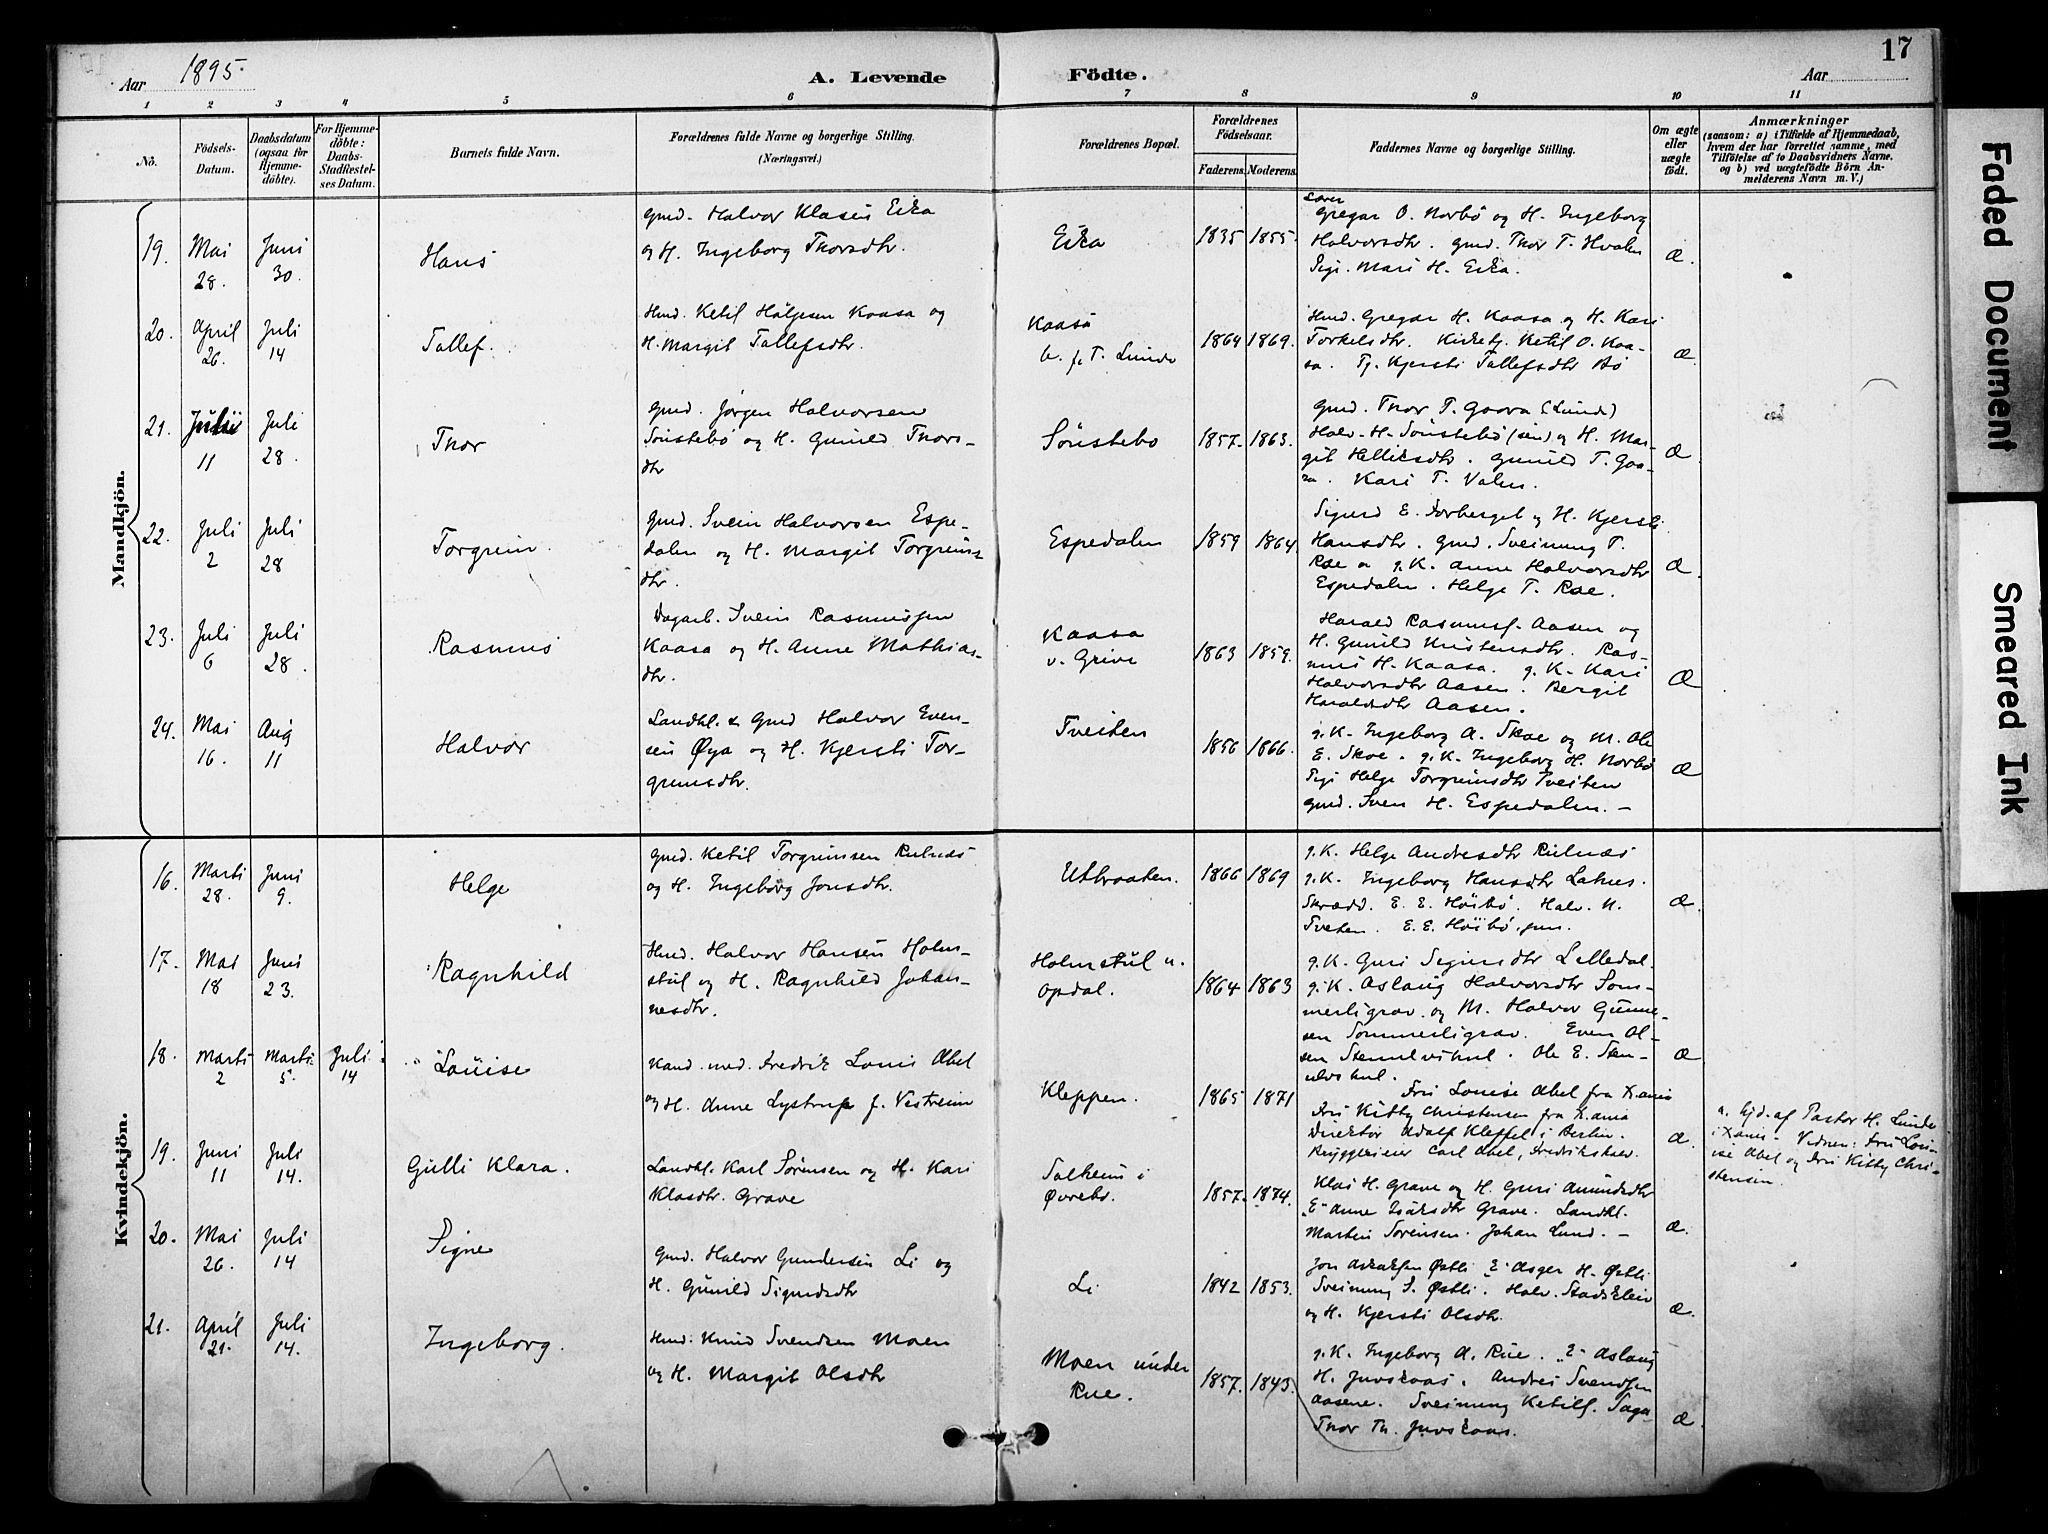 17
Aar 1895.
A. Levende Födte.
Aar
1 2 3 4 5 6 7 8 9 10 11
Nô.
Födsels-Datum.
Daabsdatum (ogsaa for Hjemme-döbte).
For Hjemme-döbte: Daabs-Stadfestel-ses Datum.
Barnets fulde Navn.
Forældrenes fulde Navne og borgerlige Stilling. (Næringsvei.)
Forældrenes Bopæl.
Forældrenes Födselsaar.
Faderens. Moderens.
Faddernes Navne og borgerlige Stilling.
Om ægte eller uægte födt.
Anmærkninger
(saasom: a) i Tilfælde af Hjemmedaab, hvem der har forrettet samme, med Tilföielse af to Daabsvidners Navne, og b) ved uægtefödte Börn An-melderens Navn m. V.)
Mandkjön.
19. Mai 28. Juni 30. Hans
Gmd. Halvor Klasen Eika
og H. Ingeborg Thorsdtr.
Eika 1835 1855.
Gregar O. Norbö og H. Ingeborg
Halvorsdtr. Gmd. Thor T. Hvalen
Pige. Mari H. Eika.
Æ.
20. April 26. Juli 14 Tallef.
Hmd. Ketil Höljesen Kaasa og
H. Margit Tallefsdtr.
Kaasa
u. f. T. Lunde
1864 1869.
Hmd. Gregar H. Kaasa og H. Kari
Torkelsdtr. Kirketj. Ketil O. Kaa-
sa. Tj. Kjersti Tallefsdtr Bö
Æ
21. Juli 11 Juli 28. Thor
Gmd. Jörgen Halvorsen
Sönstebö og H. Gunild Thors-
dtr
Sönstebö 1857. 1863.
Gmd. Thor T. Gaara (Lunde)
Halv. H. Sönstebö (sen) og H. Mar-
git Helliksdtr. Gunild T. Gaa-
ra. Kari T. Valen.
Æ
22. Juli 2 Juli 28 Torgrim.
Gmd. Svein Halvorsen Espe-
dalen og H. Margit Torgrims-
dtr.
Espedalen 1859 1864.
Sigurd E. Forberget og H. Kjersti
Hansdtr. Gmd. Sveinung T.
Rae og g.K. Anne Halvorsdtr
Espedalen. Helge T. Rae.
Æ.
23. Juli 6 Juli 28. Rasmus
Dagarb. Svein Rasmussen
Kaasa og H. Anne Mathias-
dtr.
Kaasa
u. Grive
1863 1859.
Harald Rasmuss. Aasen og
H. Gunild Kristensdtr. Ras-
mus H. Kaasa. g.K. Kari
Halvorsdtr Aasen. Bergit
Haraldsdtr Aasen.
Æ
24. Mai 16. Aug 11 Halvor
Landhl. & Gmd Halvor Even-
sen Øya og H. Kjersti Tor-
grimsdtr.
Tveiten 1856 1866.
g.K. Ingeborg A. Skoe og M. Ole
E. Skoe. g.K. Ingeborg H. Norbö
Pige Helge Torgrimsdtr Tveiten
Gmd. Sven H. Espedalen. –
Æ
Kvindekjön.
16. Marts 28. Juni 9. Helge
Gmd. Ketil Torgrimsen Rulnæs
og H. Ingeborg Jonsdtr.
Utbraaten. 1866 1869
g.K. Helge Andresdtr Rulnæs
g.K. Ingeborg Hansdtr
Skrædd. E. E. Höibö. Halv. N.
Tveten. E. E. Höibö, jun.
Æ.
17. Mai 18 Juni 23. Ragnhild
Hmd. Halvor Hansen Holm-
stul og H. Ragnhild Johan-
nesdtr.
Holmstul u.
Opdal.
1864 1863
g.K. Guri Sigurdsdtr Lilledal.
g.K. Aslaug Halvorsdtr Som-
merligrav og M. Halvor Gunne-
sen Sommerligrav. Even Ol-
sen Stenulvshul. Ole E. Sten-
ulvshul.
Æ
18. Marts 2 Marts 5. Juli 14 Louise
Kand. med. Fredrik Louis Abel
og H. Anne Lystrup f. Vestreim
Kleppen. 1865 1871
Frk Louise Abel fra Kania
Frk Kitty Christensen fra Kania
Direktör Adolf Kleffel i Berlin.
Bryggerieier Carl Abel, Fredrikshald.
Æ.
a. Hjd. af Pastor H. Lunde
i Kania. Vidner: Frk Lou-
ise Abel og Frk Kitty Chri-
stensen.
19. Juni 11 Juli 14. Gulli Klara.
Landhl. Karl Sörensen og H. Kari
Klasdtr. Grave
Solheim i
Øvrebö.
1857. 1874.
Klas H. Grave og H. Guri Amundsdtr
"E" Anne Isaksdtr Grave. Landhl.
Martin Sörensen. Johan Lund. –
Æ.
20. Mai 26. Juli 14 Signe
Gmd. Halvor Gundersen Li og
H. Gunild Sigurdsdtr
Li 1842 1853.
Jon Aslaksen Østli "E" Asger H. Østli
Sveinung S. Østli. Halv. Stadskleiv
og H. Kjersti Olsdtr.
Æ.
21. April 21. Juli 14. Ingeborg.
Hmd. Knud Svendsen Moen
og H. Margit Olsdtr
Moen under
Rue.
1857. 1843.
g.K. Ingeborg A. Rue. "E" Aslaug
H. Juvskaas. Andres Svendsen
Aasene. Sveinung Ketils. Saga
Thor Th. Juvskaas.
Æ.
Faded Document
Smeared Ink